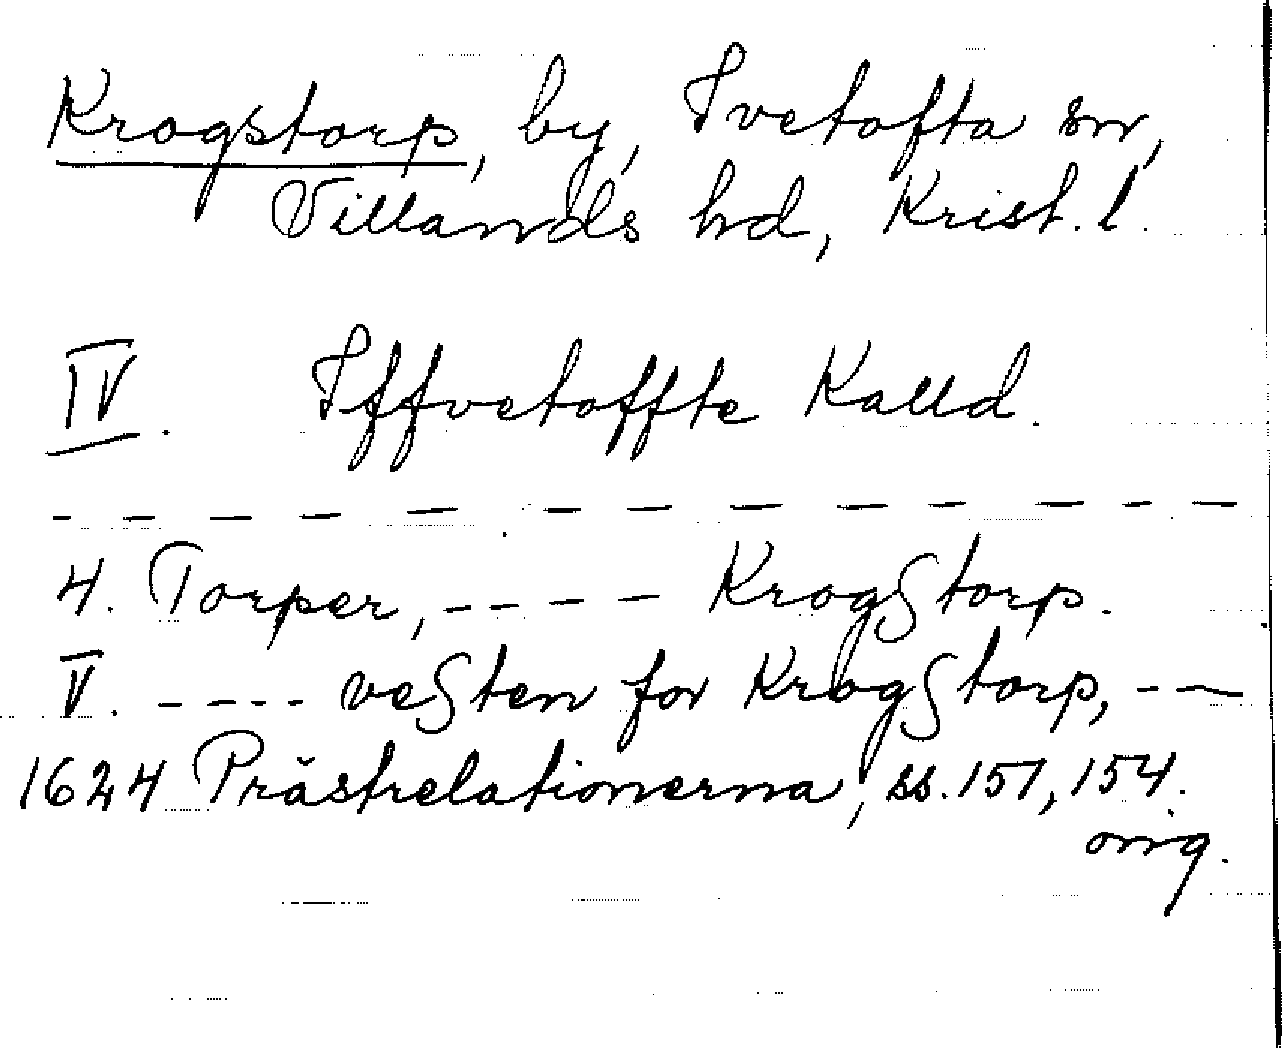 Krogstorp, by, Ivetofta sn,
Villands hd, Krist. l.
IV. Iffvetoffte Kalld.
— — — — — — — — — — — — —
4. Torper, ---- Krogstorp.
V. ---- vesten for Krogstorp, ---
1624 Prästrelationerna, ss. 151, 154.
orig.